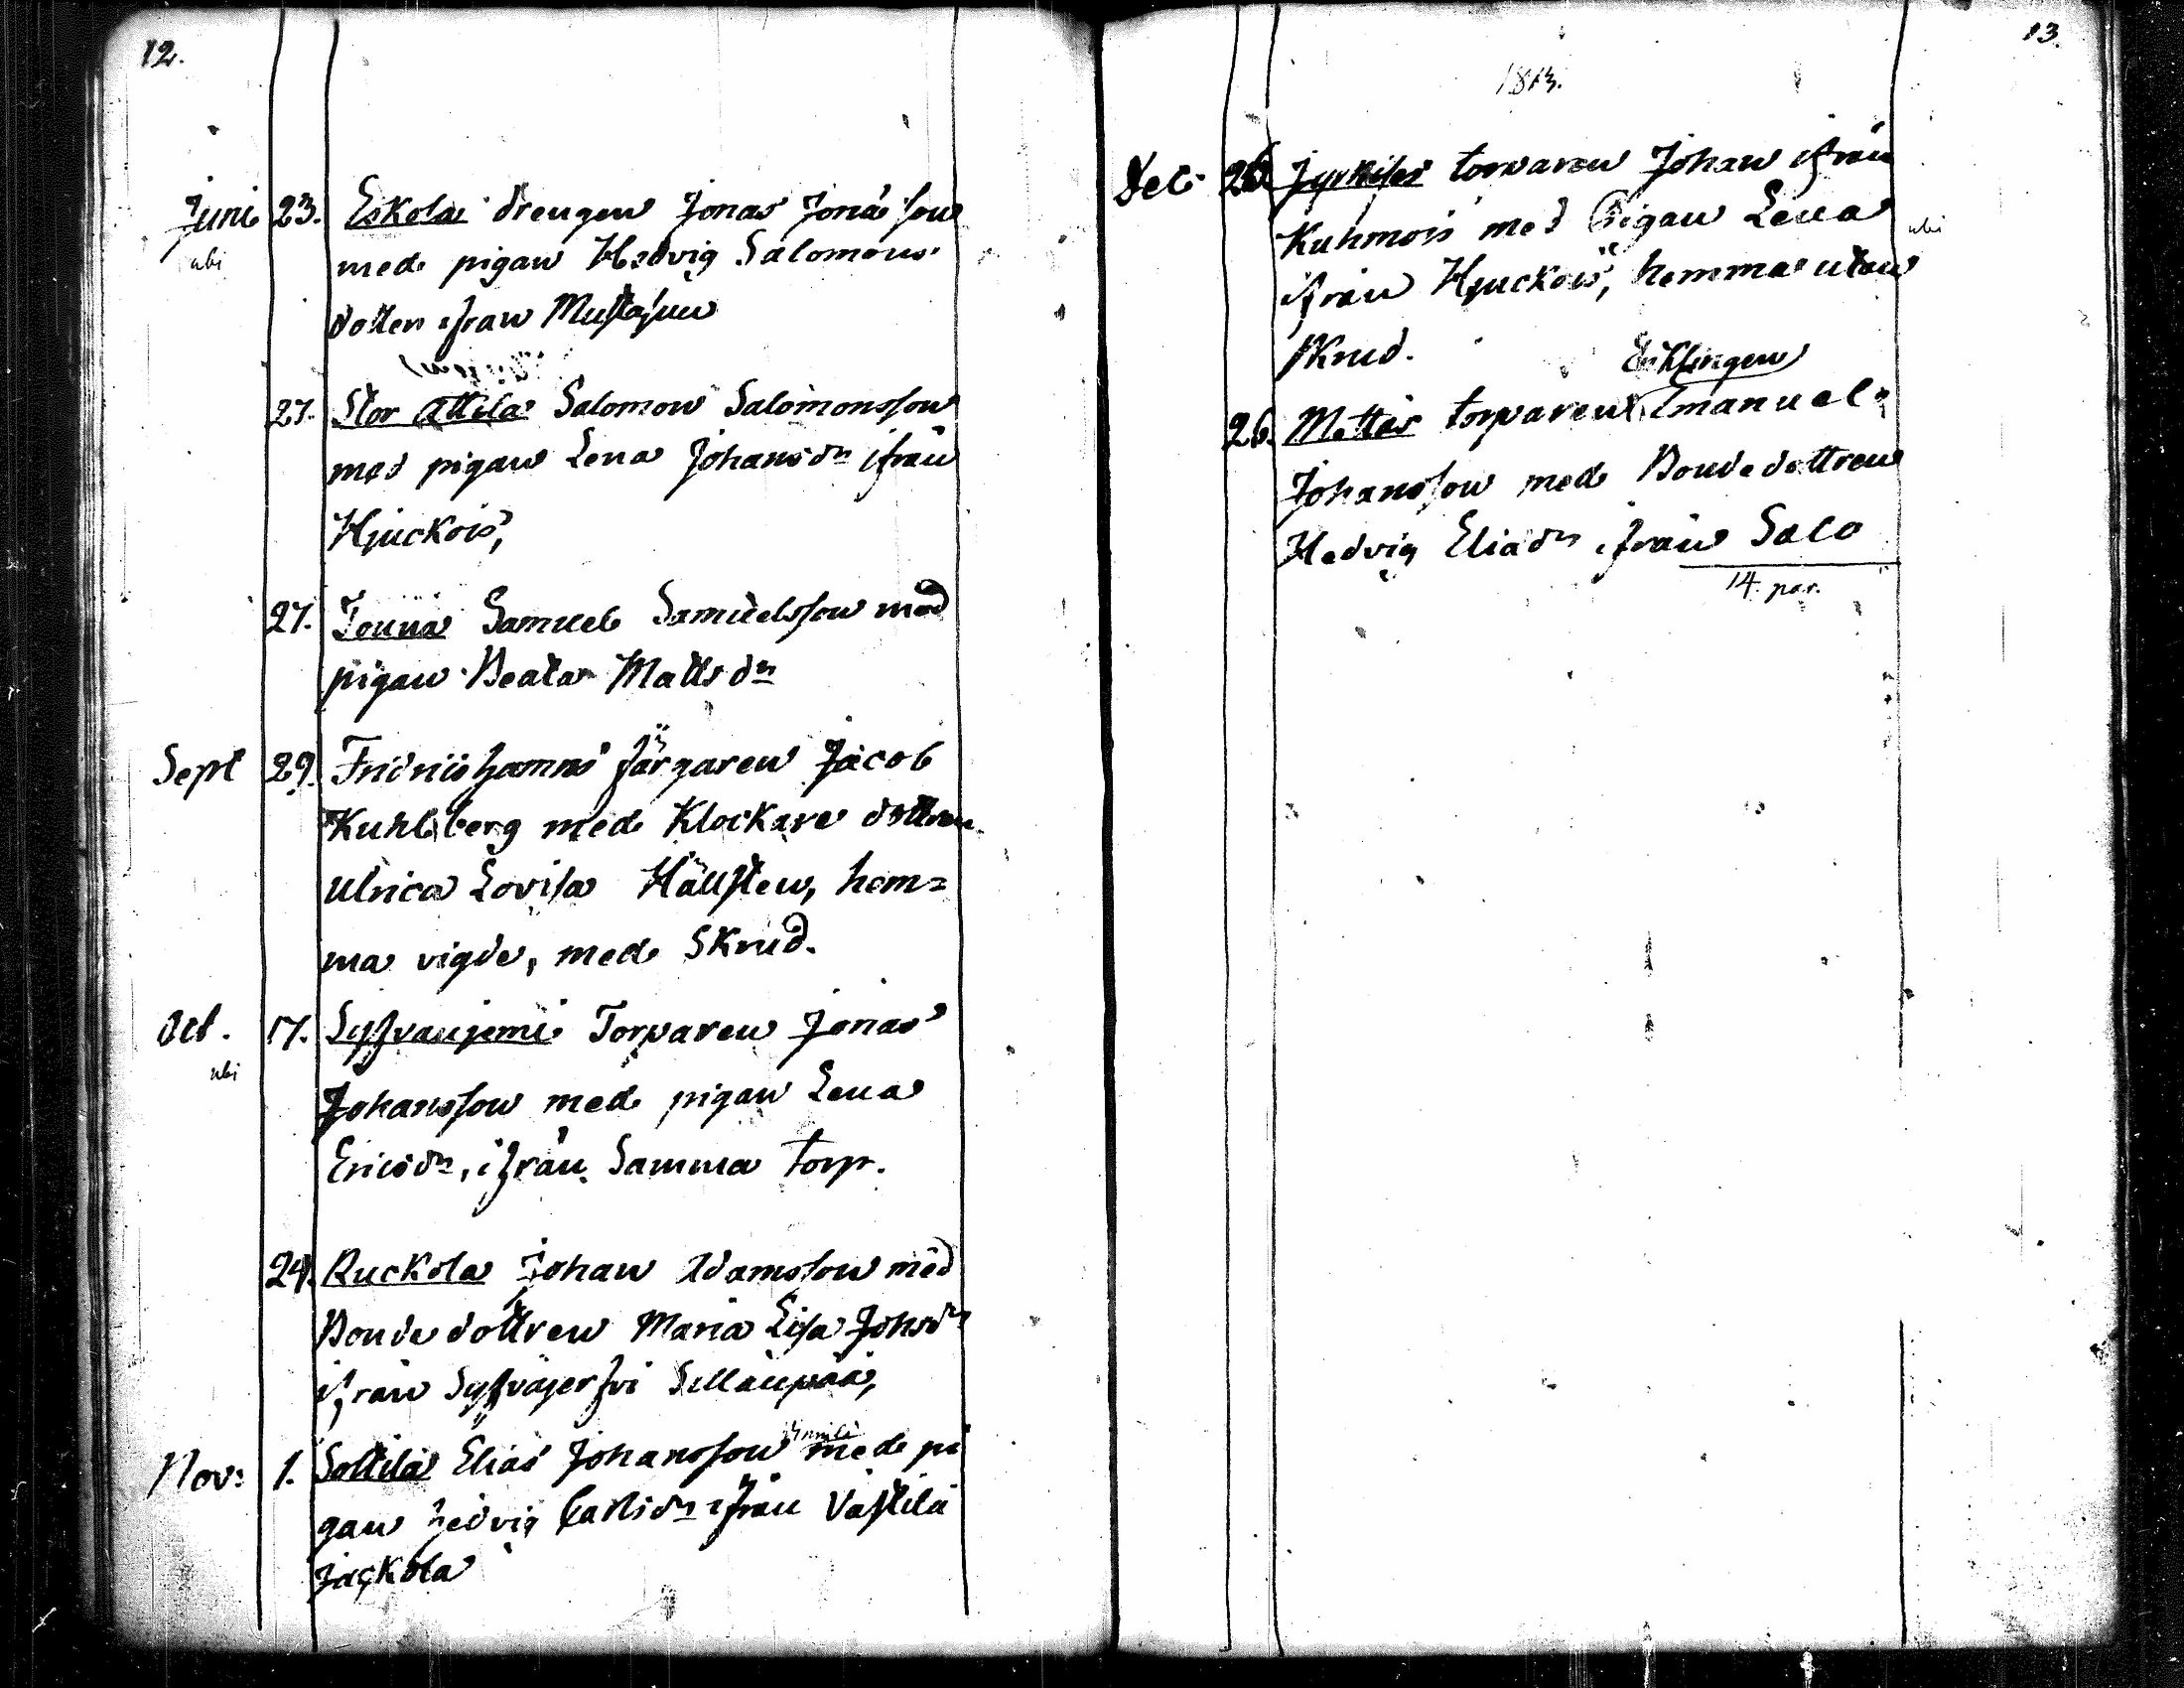 12.
Juni 23. Eskola drengen Jonas Jonasson
ubi med pigan Hedvig Salomons
dotter ifrån Mustajus
27. Stor Attila Salomon Salomonsson
med pigan Lena Johansdr ifrån
Hjuckois,
27. Jouna Samuel Samuelsson med
pigan Beata Mattsdr
Sept 29. Fridrichshamns färgaren Jacob
Kuhlberg med Klockare dottren
Ulrica Lovisa Hällsten, hem=
ma vigde, med Skrud.
Oct. 17. Syfvänjemi Torparen Jonas
ubi
Johansson med pigan Lena
Ericsdr, ifrån Samma torp.
24. Ruckola Johan Adamsson med
Bonde dottren Maria Lisa Johsdr
ifrån Syfväjerfvi Sillanpää,
Nov: 1. Sottila Elias Johansson med pi
gan Hedvig Carlsdr ifrån Västilä
Jackola
13.
1813.
Dec. 26 Jyrkilas torparen Johan ifrån
Kuhmois med Pigan Lena ubi
ifrån Hjuckois, hemma utan
Skrud.
Enklingen
26. Mattas torparen Emanuel
Johansson med Bondedottren
Hedvig Eliædr ifrån Salo
14. par.